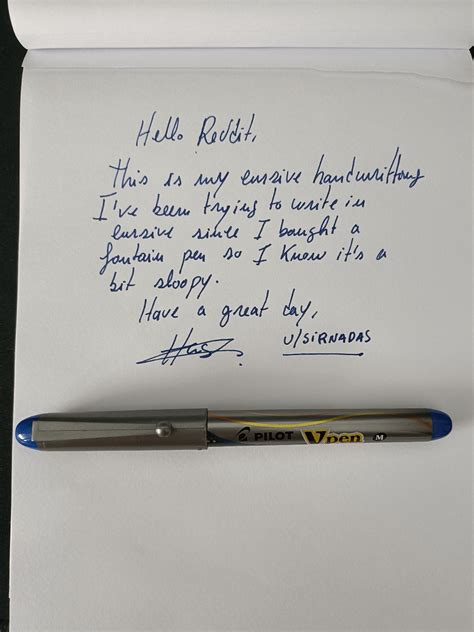 Hello Reddit,
This is my cursive handwritting
I've been trying to write in
cursive since I bought a
fontain pen so I know it's a
bit sloopy.
Have a great day,
u/SIRNADAS
PILOT Vpen M